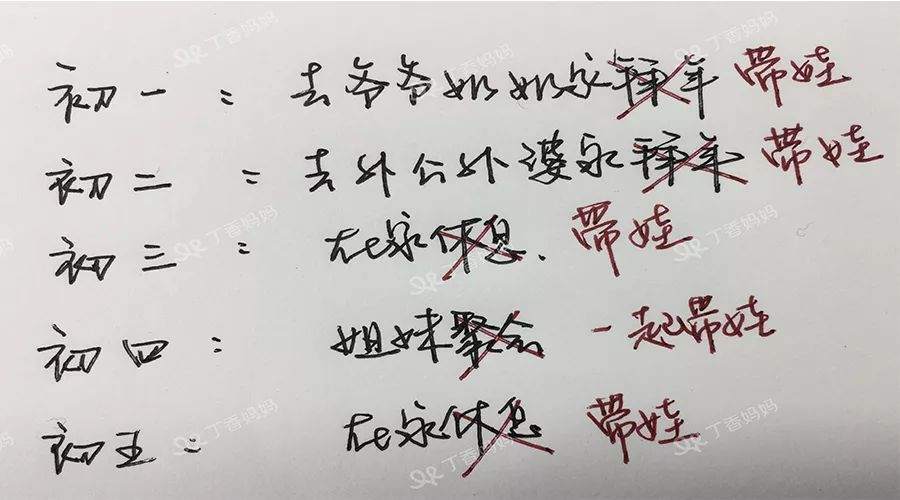 初一：去爷爷奶奶家拜年 带娃
初二：去外公外婆家拜年 带娃
初三：在家休息. 带娃
初四：姐妹聚会 一起带娃
初五：在家休息 带娃
丁香妈妈